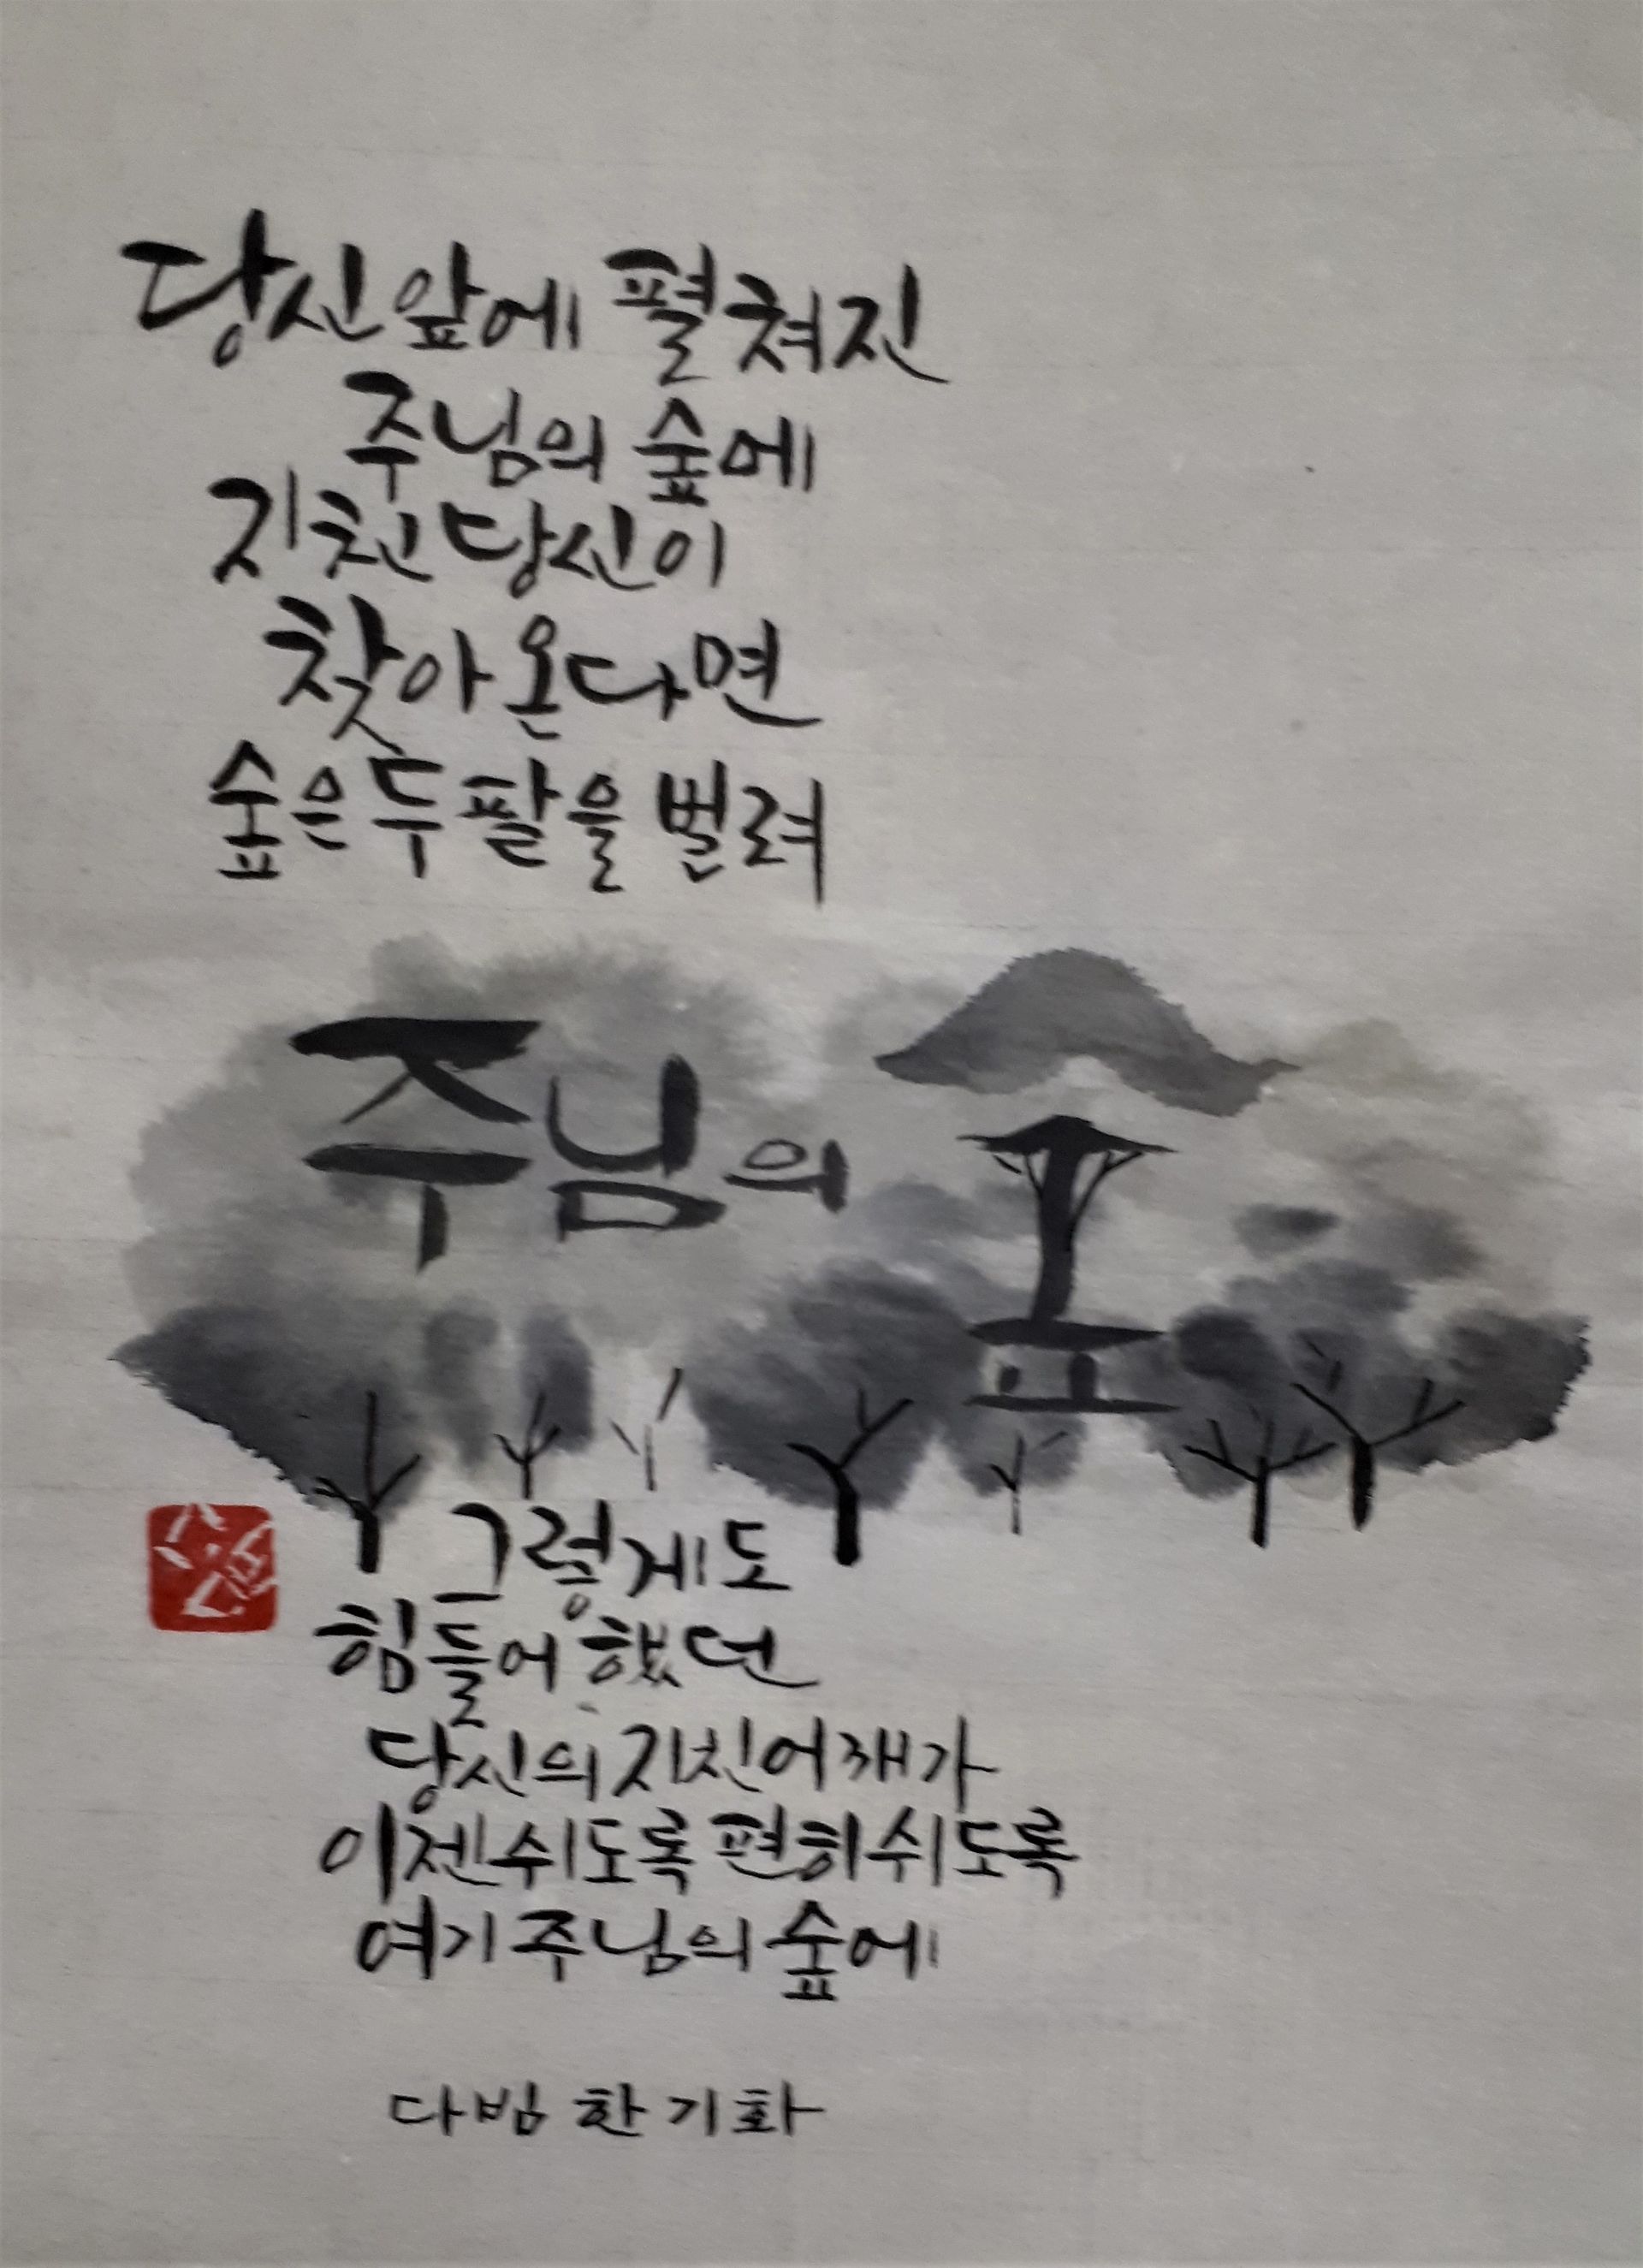 당신 앞에 펼쳐진
주님의 숲에
지친 당신이
찾아 온다면
숲은 두 팔을 벌려
주님의 숲
그렇게도
힘들어 했던
당신의 지친 어깨가
이젠 쉬도록 편히 쉬도록
여기 주님의 숲에
다빔 한기화